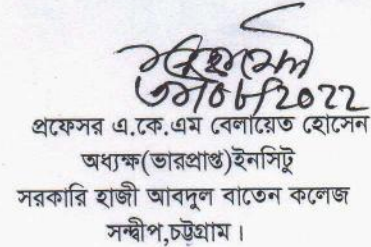 ৩০/০৮/2022
প্রফেসর এ.কে.এম বেলায়েত হোসেন
অধ্যক্ষ(ভারপ্রাপ্ত)ইনসিটু
সরকারি হাজী আবদুল বাতেন কলেজ
সন্দ্বীপ,চট্টগ্রাম।